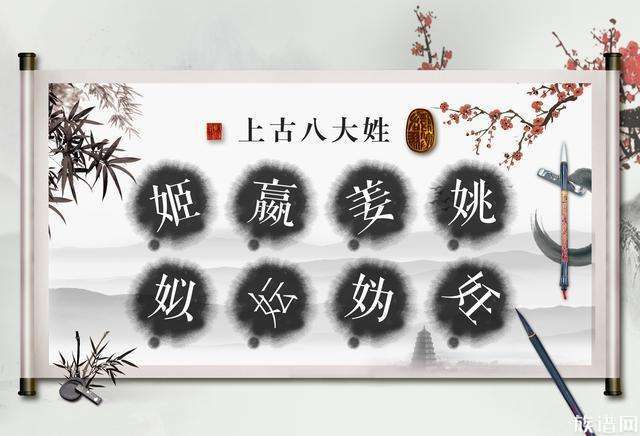 上古八大姓
姬 嬴 姜 姚
姒 妘 妫 妊
族谱网